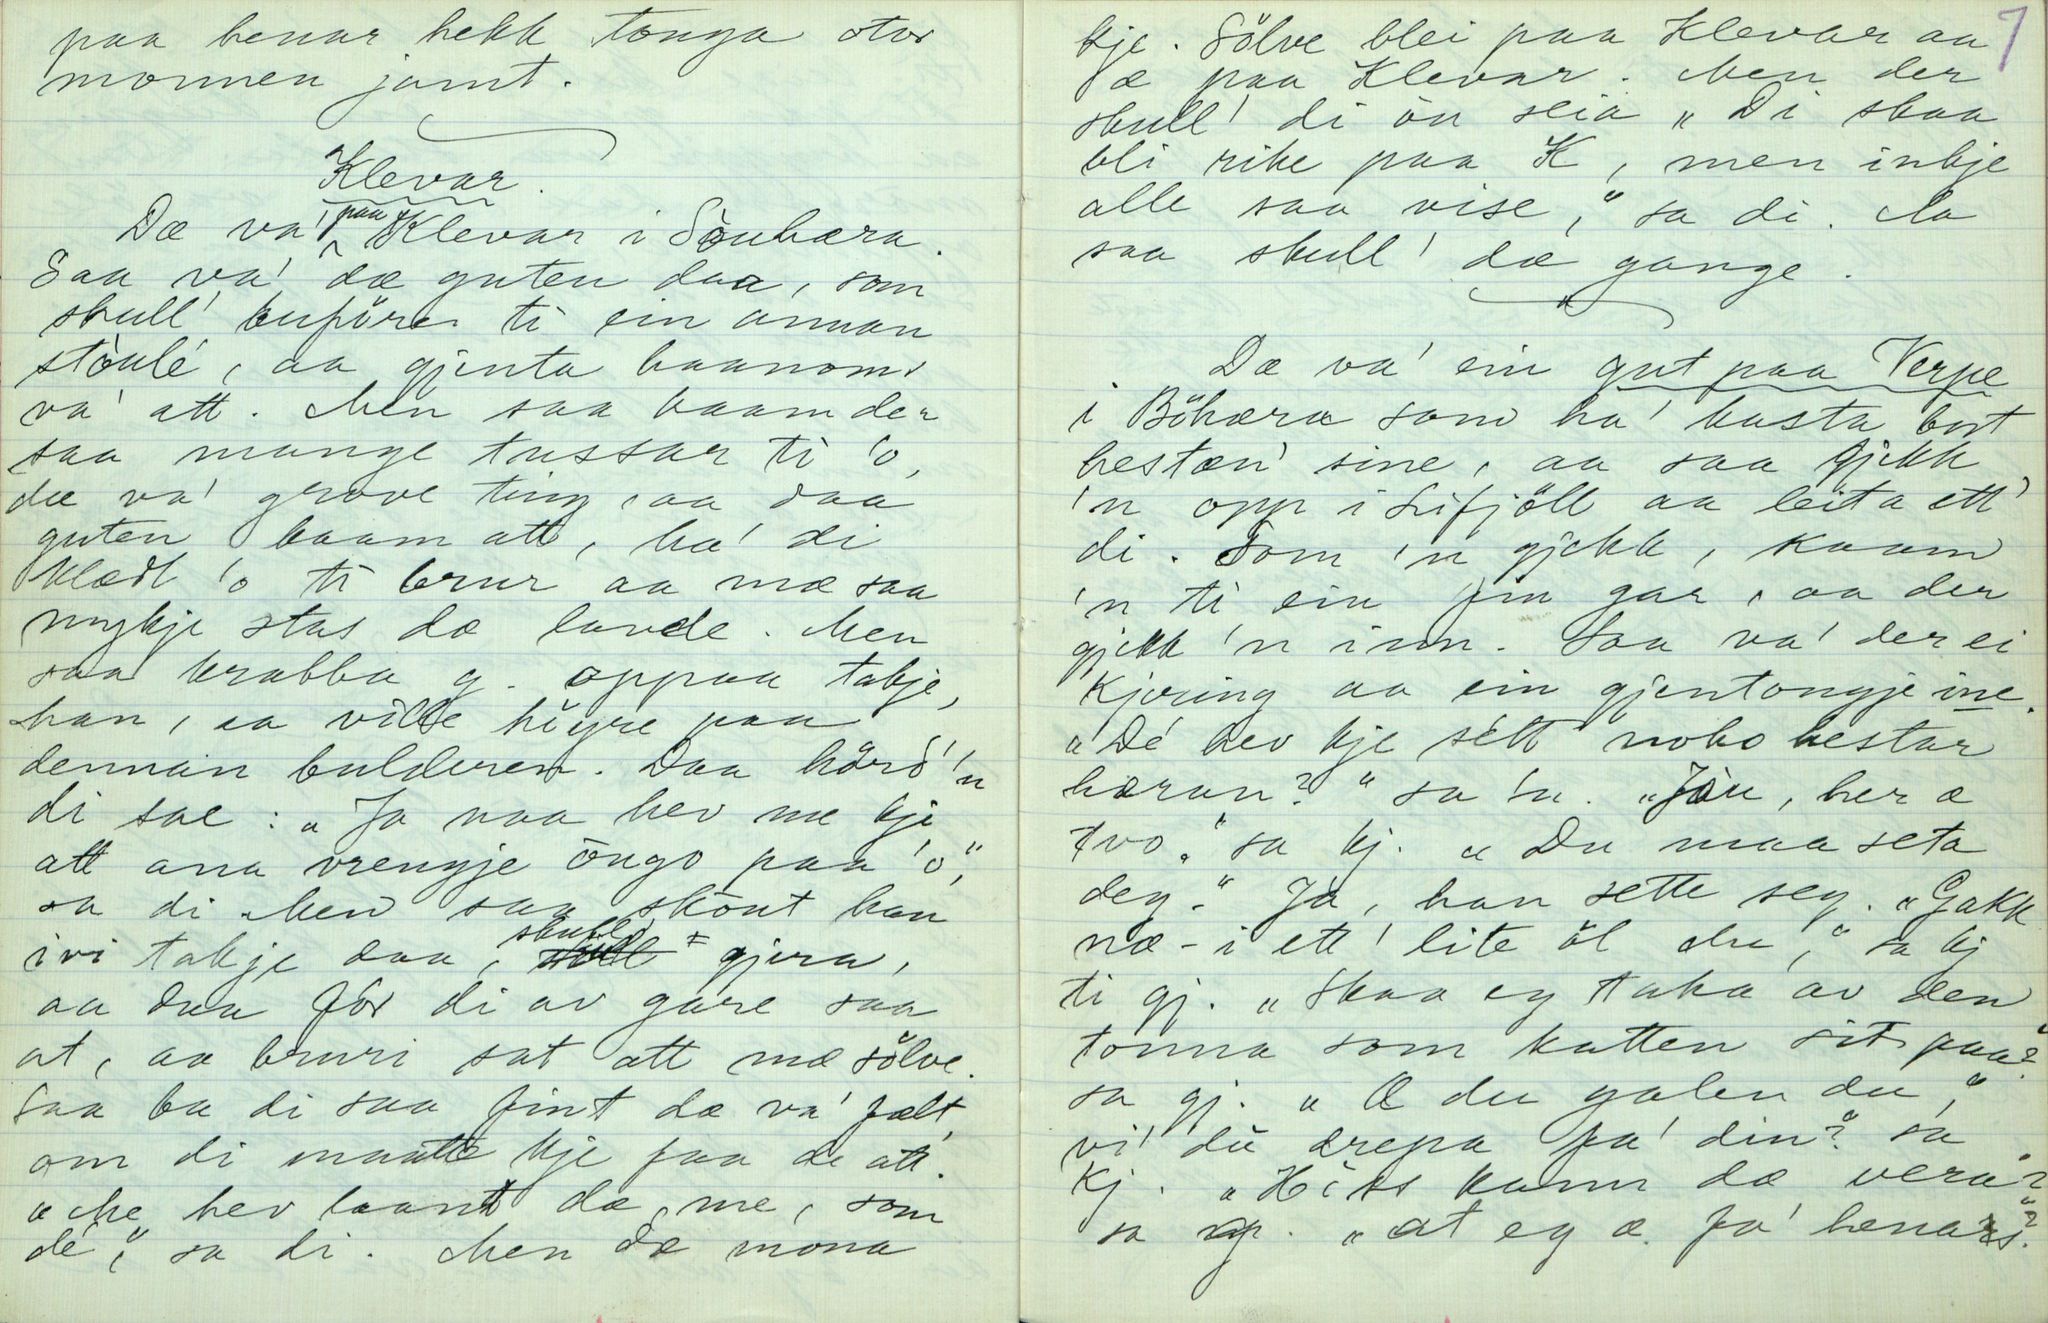 paa henar hekk tonga otor
monnen jamt.
Klevar.
Dæ va' paa Klevar i Sauheræ.
Saa va' dæ guten daa, som
skull' buföre ti ein annan
stöule, aa gjenta haanoms
va' att. Men saa kaam der
saa mange tussar ti 'o,
dæ va' grove ting, aa daa
guten kaam att, ha' di
klædt 'o ti brur aa mæ saa
mykje stas dæ lavde. Men
saa krabba g. oppaa takje,
han, aa ville högre paa
dennan bulderen. Daa hörd' 'n
di sae: „Ja naa hev me kje
att ana vrengje öugo paa 'o,"
sa di. Men saa sköut han
ivi takje daa, skulle gjera,
aa daa för di av gare saa
at, aa bruri sat att mæ sölve.
Saa ba di saa fint dæ va' fælt,
om di maatte kje faa de att.
„Me hev laant dæ, me, som
dé," sa di. Men dæ mona
7
kje. Sölve blei paa Klevar aa
æ paa Klevar. Men der
skull' di ön seia „Di skaa
bli rike paa K, men inkje
alle saa vise," sa di. Aa
saa skull' dæ gange.
Dæ va' ein gut paa Verpe
i Böheræ som ha' kasta bort
hestæn' sine, aa saa gjekk
'n opp i Lifjöll aa leita ett'
di. Som 'n gjekk, kaam
'n ti ein fin gar, aa der
gjekk 'n inn. Saa va' der ei
Kjering aa ein gjentongje ine.
„Dé hev kje sétt noko hestar
heran?" sa 'n. „Jöu, her æ
tvo." sa kj. „Du maa seta
deg." Ja, han sette seg. „Gakk
næ-i ett' lite öl du," sa kj
ti gj. „Skaa eg taka av den
tonna som katten sit paa?"
sa gj. „Æ du galen du,
vi' du drepa fa' din?" sa
kj. „Hoss kann dæ vera?"
sa g. „at eg æ fa' henars?"